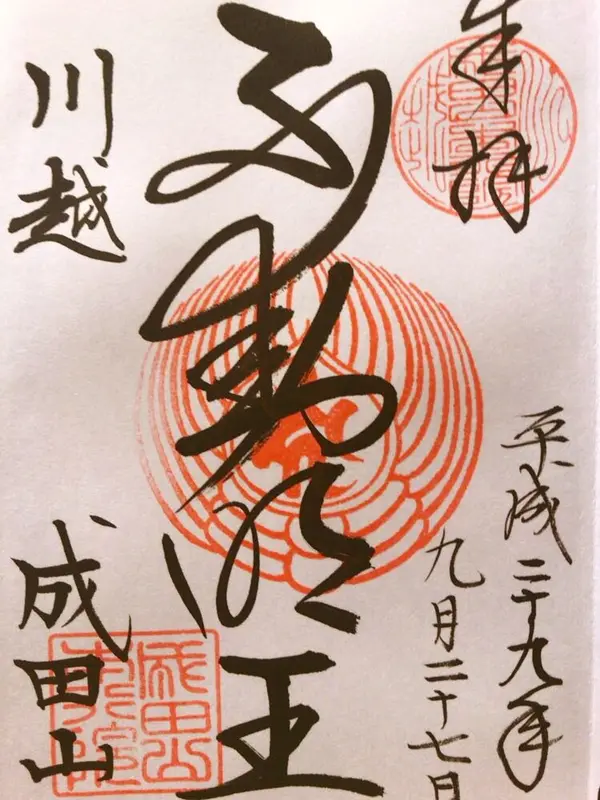 奉拝
平成二十九年
九月二十七日
不動明王
川越
成田山